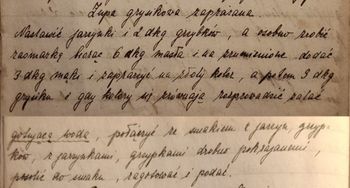 Zupa grzybkowa zaprażana.
Nastawić jarzynki i 2 dkg grzybków, a osobno zrobić
zasmażkę biorąc 6 dkg masła i na zrumienione dodać
3 dkg mąki i zaprażyć na złoty kolor, a potem 3 dkg
grysiku i gdy kolory się przyrównają rozprowadzić zalać
gotującą wodą, połączyć ze smakiem z jarzyn, grzyb-
ków, z jarzynkami, grzybkami drobno pokrajanemi,
posolić do smaku, zagotować i podać.